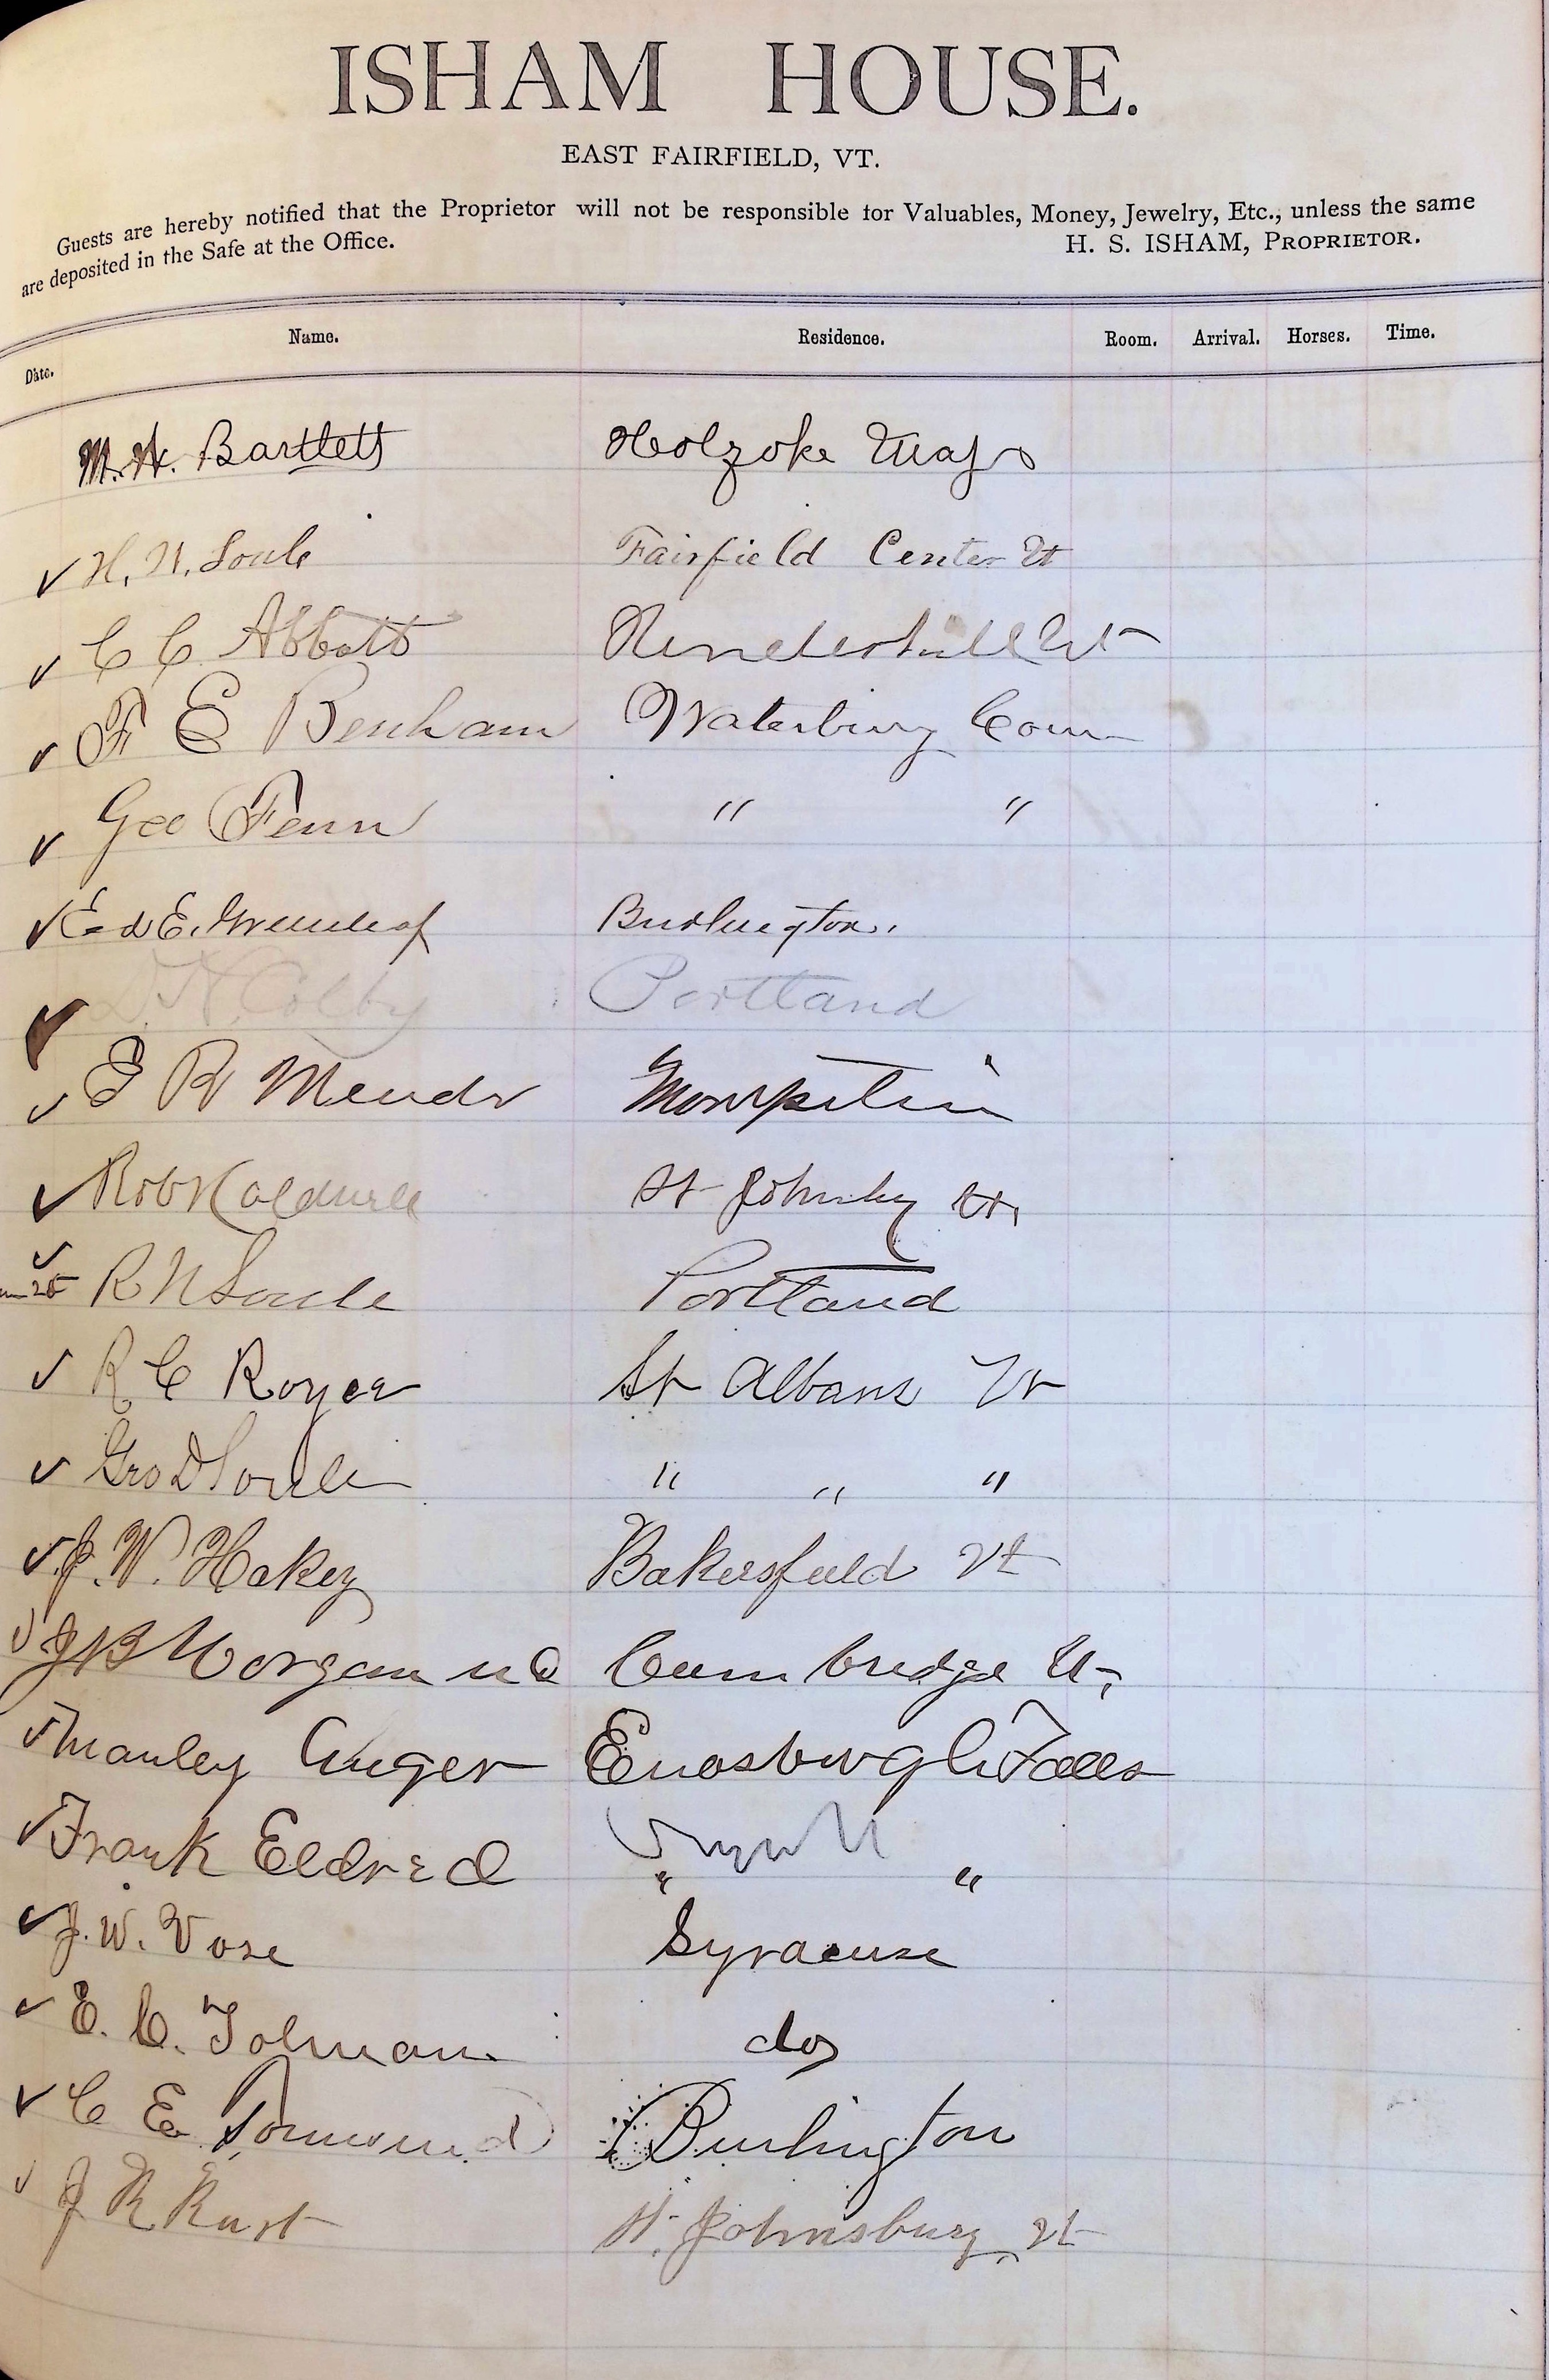 ISHAM HOUSE.
EAST FAIRFIELD, VT.
Guests are hereby notified that the Proprietor will not be responsible for Valuables, Money, Jewelry, Etc., unless the same
are deposited in the Safe at the Office. H. S. ISHAM, PROPRIETOR.
Date. Name. Residence. Room. Arrival. Horses. Time.
M. H. Bartlett Holyoke Mass
✓ H. N. Soule Fairfield Center Vt
✓ C C Abbott Underhill Vt
✓ F E Benham Waterbury Conn
✓ Geo Fenn " "
✓ Ed E. Greenleaf Burlington.
✓ D. H. Colby Portland
✓ E R Meader Montpelier
✓ Robt Caldwell St Johnsby Vt.
✓ 25 R N Soule Portland
✓ R C Royce St Albans Vt
✓ Geo D Soule " " "
✓ J. W. Hakey Bakersfield Vt
✓ J B Morgan M D Cambridge Vt,
✓ Manley Auger Enosburgh Falls
✓ Frank Eldred " "
✓ J. W. Vose Syracuse
✓ E. C. Tolman do
✓ C E Townsend Burlington
✓ J R Rust St. Johnsbury, Vt